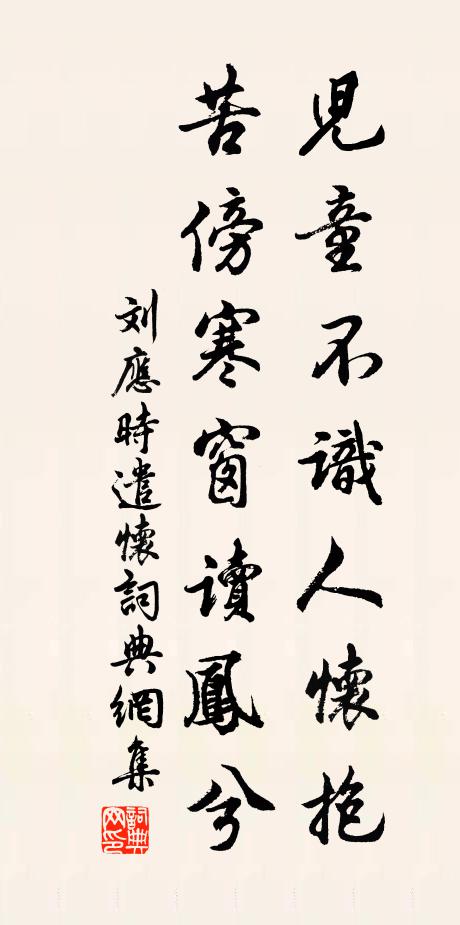 兒童不識人懷抱
苦傍寒窗讀鳳兮
刘應時遣懷詞典網集
詞典网印